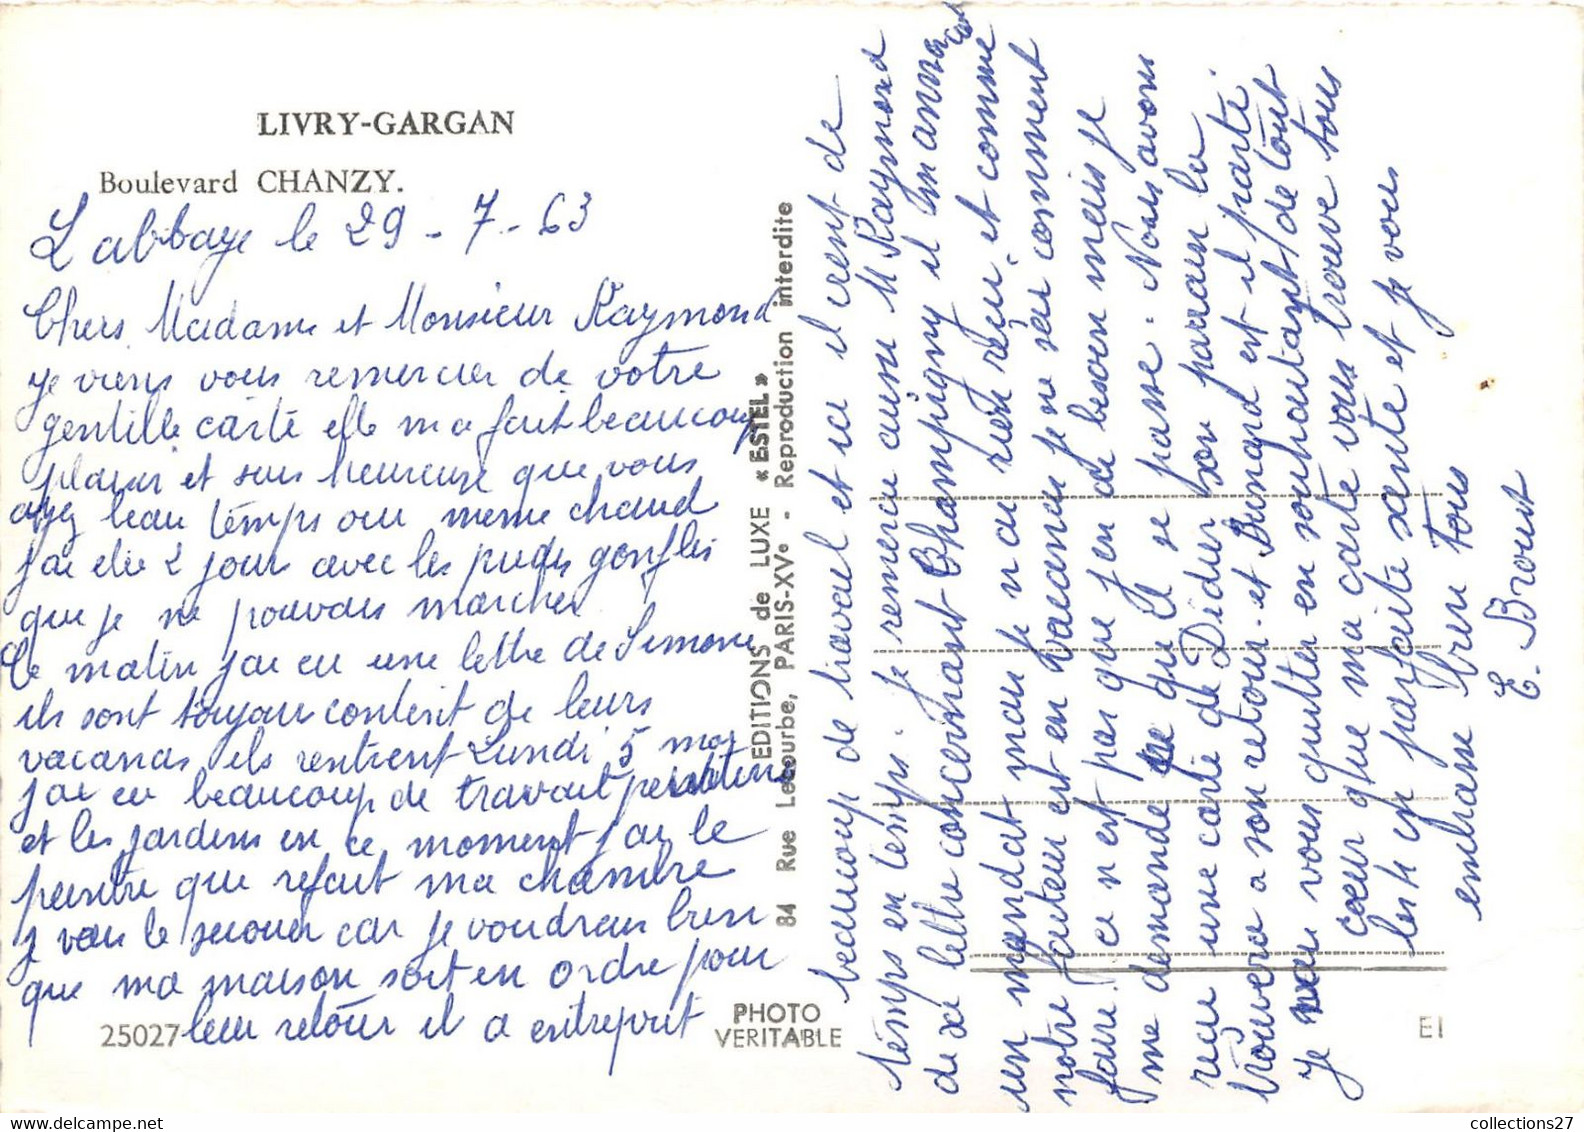 LIVRY-GARGAN
Boulevard CHANZY.
L abbaye le 29 - 7 - 63
Chers Madame et Monsieur Raymond
je viens vous remercier de votre
gentille carte elle m a fait beaucoup
plaisir et suis heureuse que vous
ayez beau temps ou meme chaud
j ai été 2 jours avec les pieds gonfles
que je ne pouvais marcher
Ce matin j ai eu une lettre de Simone
ils sont toujours content de leurs
vacances ils rentrent Lundi 5 moi
j ai eu beaucoup de travail
et les jardins en ce moment j ai le
peintre que refait ma chambre
je vais le secouer car je voudrais bien
que ma maison soit en ordre pour
leur retour il a entreprit
25027
EDITIONS de LUXE « ESTEL »
84 Rue Lecourbe, PARIS-XVe - Reproduction interdite
PHOTO
VERITABLE
EI
beaucoup de travail et ca il vient de
temps en temps. Je remercie aussi M Raymond
de sa lettre concernant Champigny il m annonce
un mandat mais je n ai rien reçu et comme
notre facteur est en vacances je ne sais comment
faire ce n est pas que j en ai besoin mais je
me demande ce qu il se passe. Nous avons
reçu une carte de Didier son parrain la
trouvera a son retour. et Bernard est il parti.
Je vais vous quitter en souhaitant de tout
cœur que ma carte vous trouve tous
les 4 en parfaite santé et je vous
embrasse bien tous
E. Brouet
collections27